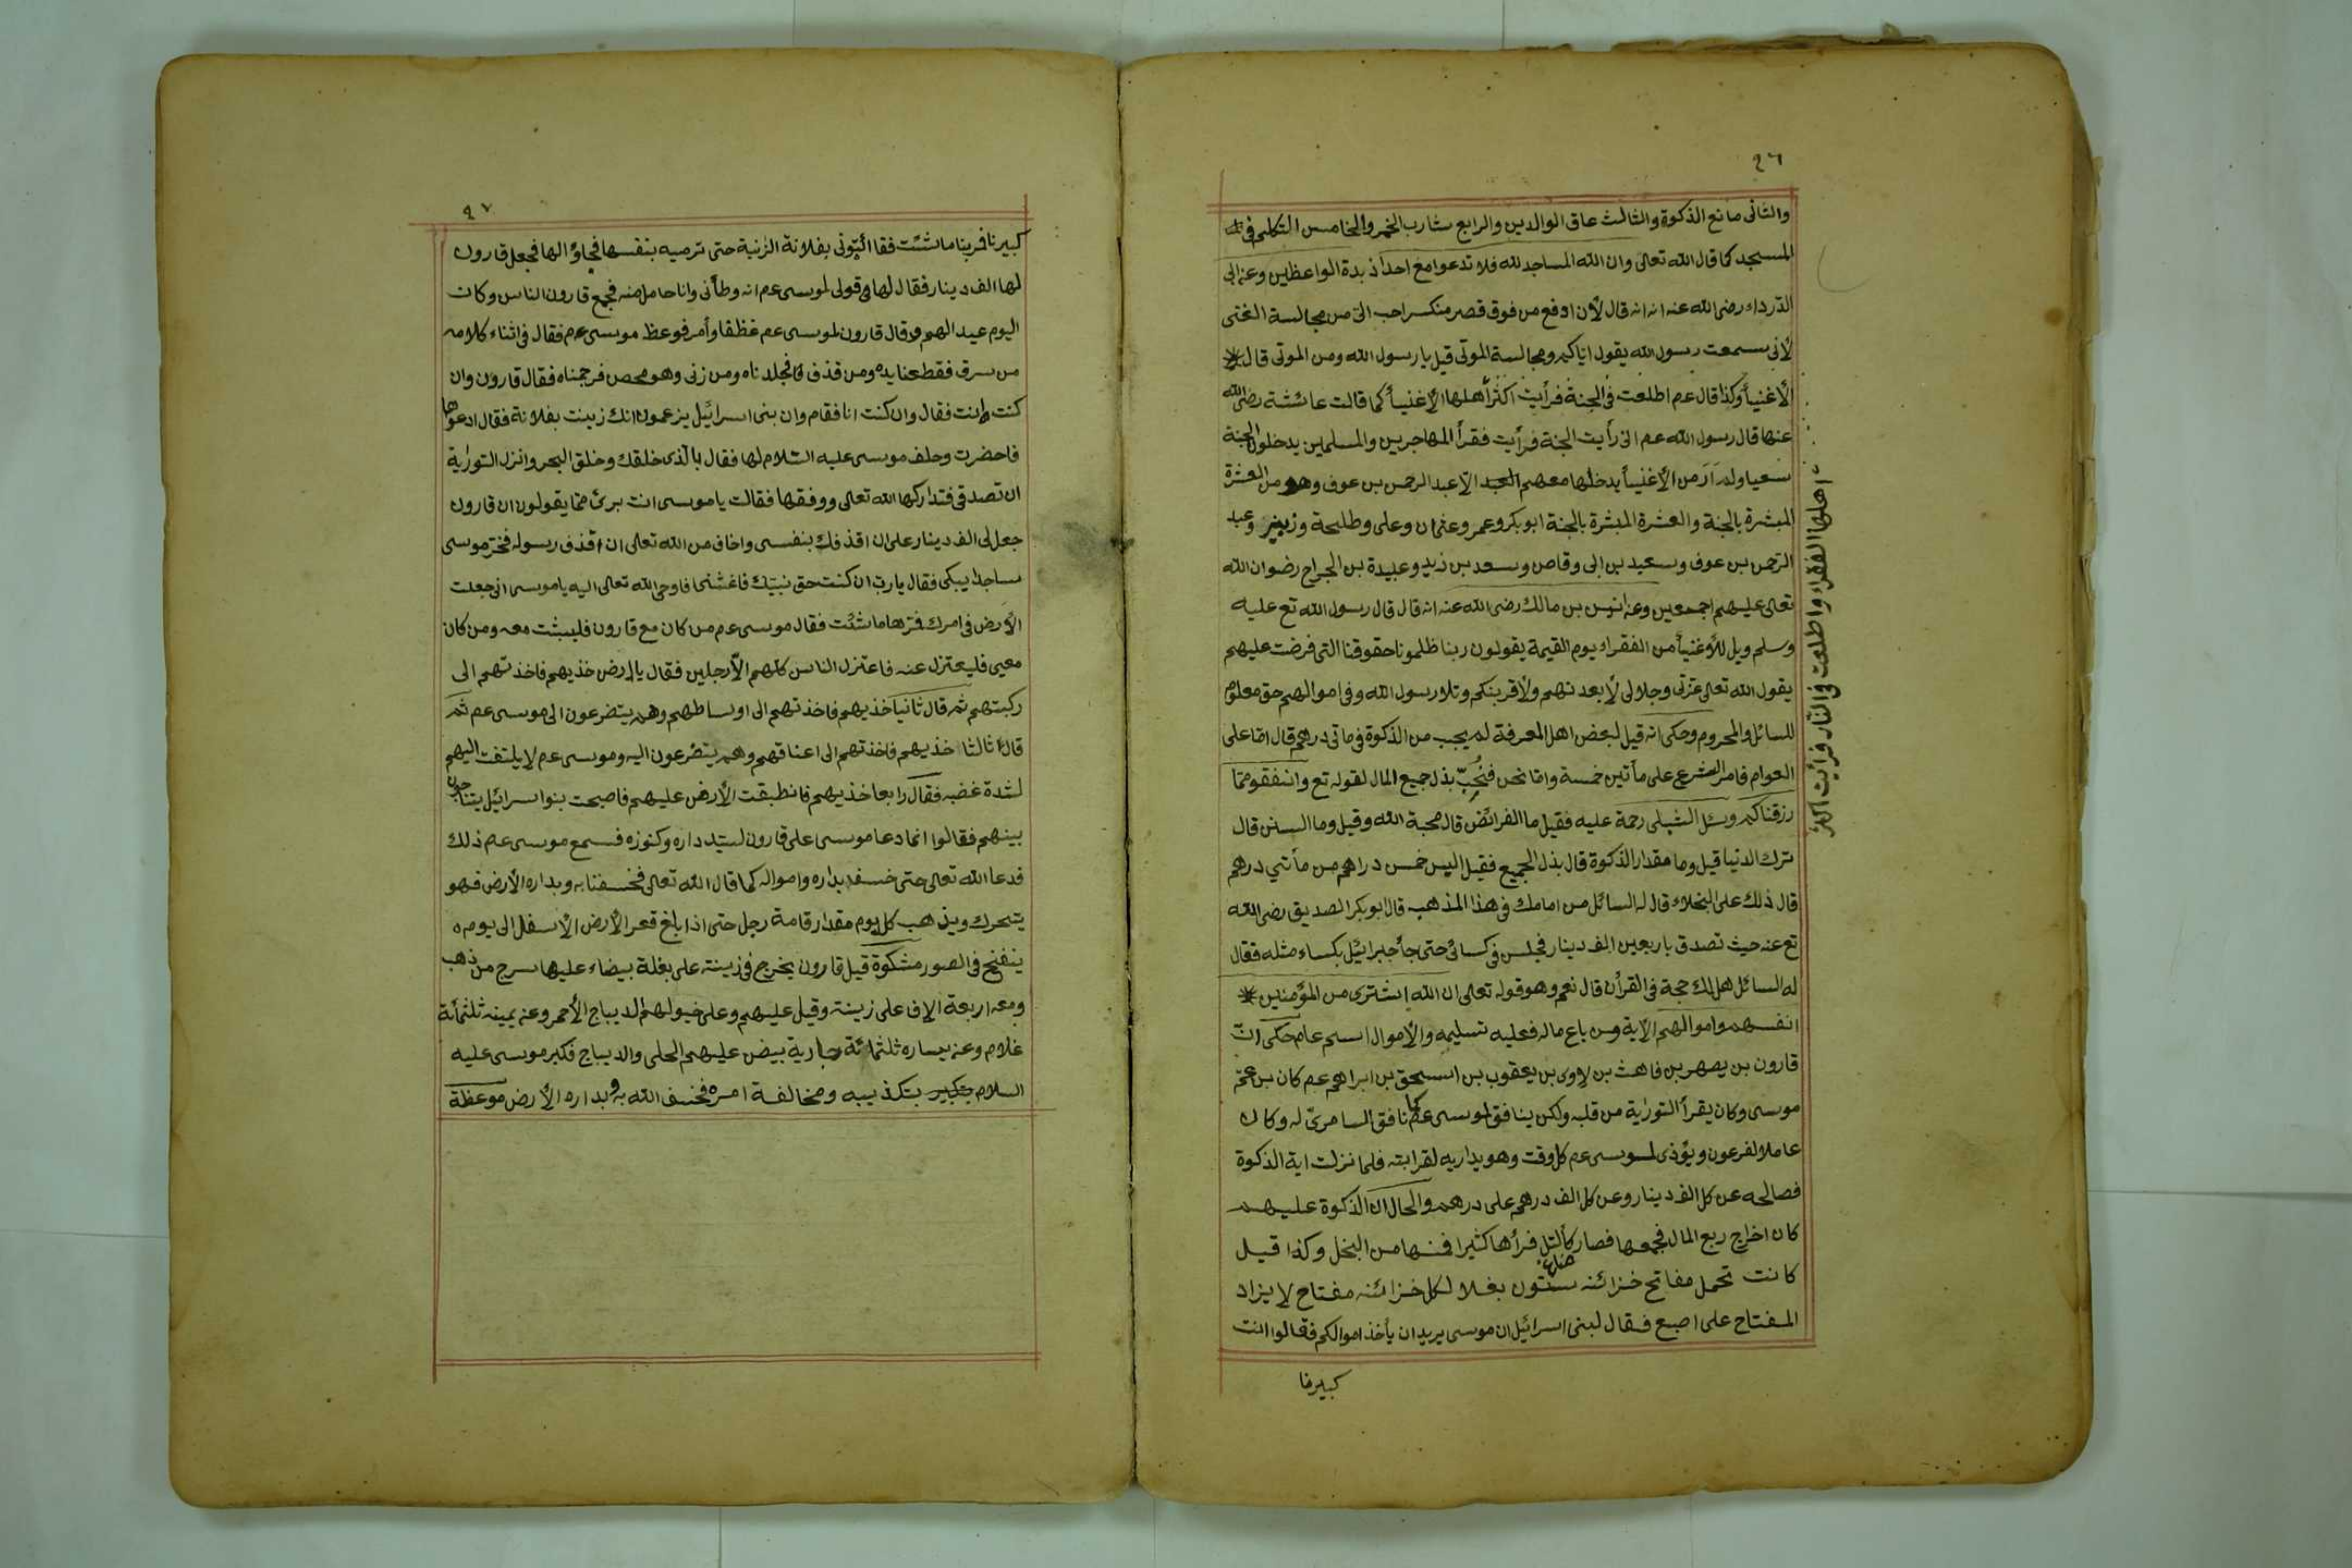 ٩٦
والثانى مانع الذكوة والثالث عاق الوالدين والرابع شارب الخمر والخامس التكلم فى
المسجد كما قال الله تعالى وان الله المساجد لله فلا تدعوا مع احدا زبدة الواعظين وعن ابى
الدرداء رضى الله عنه انه قال لأن اوقع من فوق قصر منكسر احب الى من مجالسة الغنى
لأنى سمعت رسول الله يقول اياكم ومجالسة الموتى قيل يا رسول الله ومن الموتى قال
الأغنيأ وكذا قال عم اطلعت فى الجنة فرأيت اكثر أهلها الأغنيأ كما قالت عائشة رضى الله
عنها قال رسول الله عم انى رأيت الجنة فرأيت فقرأ المهاجرين والمسلمين يدخلون الجنة
سعيا ولم ار من الأغنيأ يدخلها معهم الا عبد الرحمن بن عوف وهو من العشرة
المبشرة بالجنة والعشرة المبشرة بالجنة ابو بكر وعمر وعثمان وعلى وطلحة وزبير وعبد
الرحمن بن عوف وسعيد بن ابى وقاص وسعد بن زيد وعبيدة بن الجراح رضوان الله
تعالى عليهم اجمعين وعن انس بن مالك رضى الله عنه انه قال قال رسول الله تع عليه
وسلم ويل للأغنيأ من الفقراء يوم القيمة يقولون ربنا ظلمونا حقوقنا التى فرضت عليهم
يقول الله تعالى عزتى وجلالى لأبعدنهم ولأقربنكم وتلا رسول الله وفى اموالهم حق معلوم
للسائل والمحروم وحكى انه قيل لبعض اهل المعرفة لم يجب من الذكوة فى مأتى درهم قال اما على
العوام فامر الشرع على مأتين خمسة واما نحن فنحب بذل جميع المال لقوله تع وانفقو مما
رزقناكم وسئل الشبلى رحمة عليه فقيل ما الفرائض قال محبة الله وقيل وما السنن قال
ترك الدنيا قيل وما مقدار الذكوة قال بذل الجميع فقيل اليس خمس دراهم من مأتي درهم
قال ذلك على البخلاء قال له السائل من امامك فى هذا المذهب قال ابو بكر الصديق رضى الله
تع عنه حيث تصدق باربعين الف دينار فجلس فى كسائ حتى جأ جبرائيل بكساء مثله فقال
له السائل هل لك حجة فى القرأن قال نعم وهو قوله تعالى ان الله اشترى من المؤمنين
انفسهم واموالهم الآية ومن باع ماله فعليه تسليمه والأموال اسم عام حكى ان
قارون بن يصهر بن فاهث بن لاوى بن يعقوب بن اسحق بن ابراهم عم كان بن عم
موسى وكان يقرأ التورية من قلبه ولكن ينافق لموسى عم كما نافق السامرى له وكان
عاملا لفرعون ويؤذى لموسى عم كل وقت وهو يداريه لقرابته فلما نزلت اية الذكوة
فصالحه عن كل الف دينار وعن كل الف درهم على درهم والحال ان الذكوة عليهم
كان اخراج ربع المال فجمعها فصار كألتل فرأها كثيرا فمنها من البخل وكذا قيل
كانت تحمل مفاتح خزائنه ستون بغلا لكل خزائنه مفتاح لا يزاد
المفتاح على اصبع فقال لبنى اسرائيل ان موسى يريد ان يأخذ اموالكم فقالوا انت
كبيرنا
اهلها الفقراء واطلعت فى النار فرأيت اكثر
٩٧
كبيرنا فمرينا ما شئت فقا ائتونى بفلانة الزنية حتى ترميه بنفسها فجاؤا الها فجعل قارون
لها الف دينار فقال لها قولى لموسى عم انه وطأنى وانا حامل منه فجمع قارون الناس وكان
اليوم عيد الهم وقال قارون لموسى عم عظنا وأمر فوعظ موسى عم فقال فى اثناء كلامه
من سرق فقطعنا يده ومن قذف فجلدناه ومن زنى وهو محصن فرجمناه فقال قارون وان
كنت انت فقال وان كنت انا فقام وان بنى اسرائيل يزعمون انك زنيت بفلانة فقال ادعوها
فاحضرت وحلف موسى عليه السلام لها فقال بالذى خلقك وخلق البحر وانزل التورية
ان تصدقى فتداركها الله تعالى ووفقها فقالت يا موسى انت برئ مما يقولون ان قارون
جعل لى الف دينار على ان اقذفك بنفسى واخاف من الله تعالى ان اقذف رسوله فخر موسى
ساجدا يبكى فقال يا رب ان كنت حق نبيك فاغثنى فاوحى الله تعالى اليه يا موسى انى جعلت
الأرض فى امرك فمرها ما شئت فقال موسى عم من كان مع قارون فليبثت معه ومن كان
معى فليعتزل عنه فاعتزل الناس كلهم الا رجلين فقال يا ارض خذيهم فاخذتهم الى
ركبتهم ثم قال ثانيا خذيهم فاخذتهم الى اوساطهم وهم يتضرعون الى موسى عم ثم
قال ثالثا خذيهم فاخذتهم الى اعناقهم وهم يتضرعون اليه وموسى عم لا يلتفت اليهم
لشدة غضبه فقال رابعا خذيهم فانطبقت الأرض عليهم فاصبحت بنوا اسرائيل يتناجون
بينهم فقالوا انما دعا موسى على قارون لسيتد داره وكنوزه فسمع موسى عم ذلك
فدعا الله تعالى حتى خسف بداره وامواله كما قال الله تعالى فخسفنا به وبداره الأرض فهو
يتحرك ويذهب كل يوم مقدار قامة رجل حتى اذا بلغ قعر الأرض الأسفل الى يوم
ينفخ فى الصور مشكوة قيل قارون يخرج فى زينته على بغلة بيضاء عليها سرج من ذهب
ومعه اربعة الاف على زينته وقيل عليهم وعلى خيولهم الديباج الأحمر وعن يمينه ثلثمأئة
غلام وعن يساره ثلثمائة جارية بيض عليهم الحلى والديباج فكبر موسى عليه
السلام بتكذيبه ومخالفة امره فخسف الله به وبداره الأرض موعظة